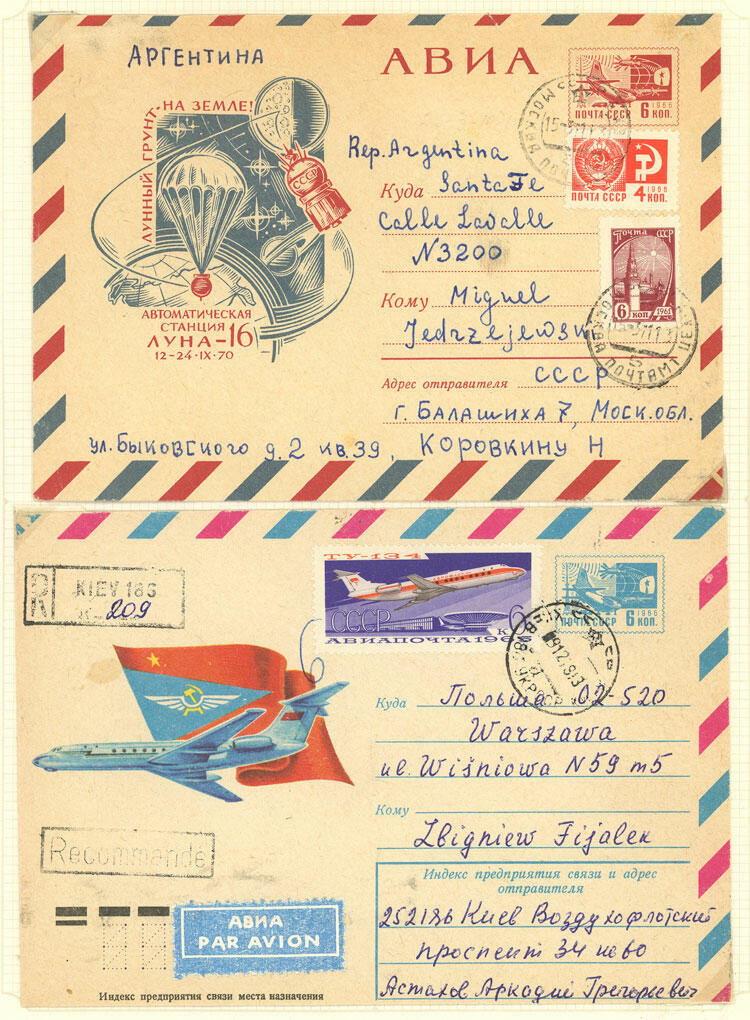 АРГЕНТИНА
АВИА
ЛУННЫЙ ГРУНТ
НА ЗЕМЛЕ!
СССР
АВТОМАТИЧЕСКАЯ
СТАНЦИЯ
ЛУНА-16
12-24·IX·70
1966
ПОЧТА СССР 6 КОП.
1966
ПОЧТА СССР 4 КОП.
ПОЧТА СССР
6 КОП 1961
МОСКВА ПОЧТАМТ
Rep. Argentina
Куда Santa Fe
Calle Lavalle
N3200
Кому Miguel
Jedrzejewski
Адрес отправителя СССР
г. БАЛАШИХА 7, МОСК.ОБЛ.
ул. БЫКОВСКОГО д. 2 кв. 39, КОРОВКИНУ Н
R KIEV 186
209
ТУ-134
СССР
6 К
АВИАПОЧТА 1965
1966
ПОЧТА СССР 6 КОП.
Куда Польша 02-520
Warszawa
ul. Wiśniowa N 59 m 5
Кому
Zbigniew Fijalek
Recommandé
Индекс предприятия связи и адрес
отправителя
252186 Киев Воздухофлотский
проспект 34
Астахов Аркадий Григорьевич
АВИА
PAR AVION
Индекс предприятия связи места назначения